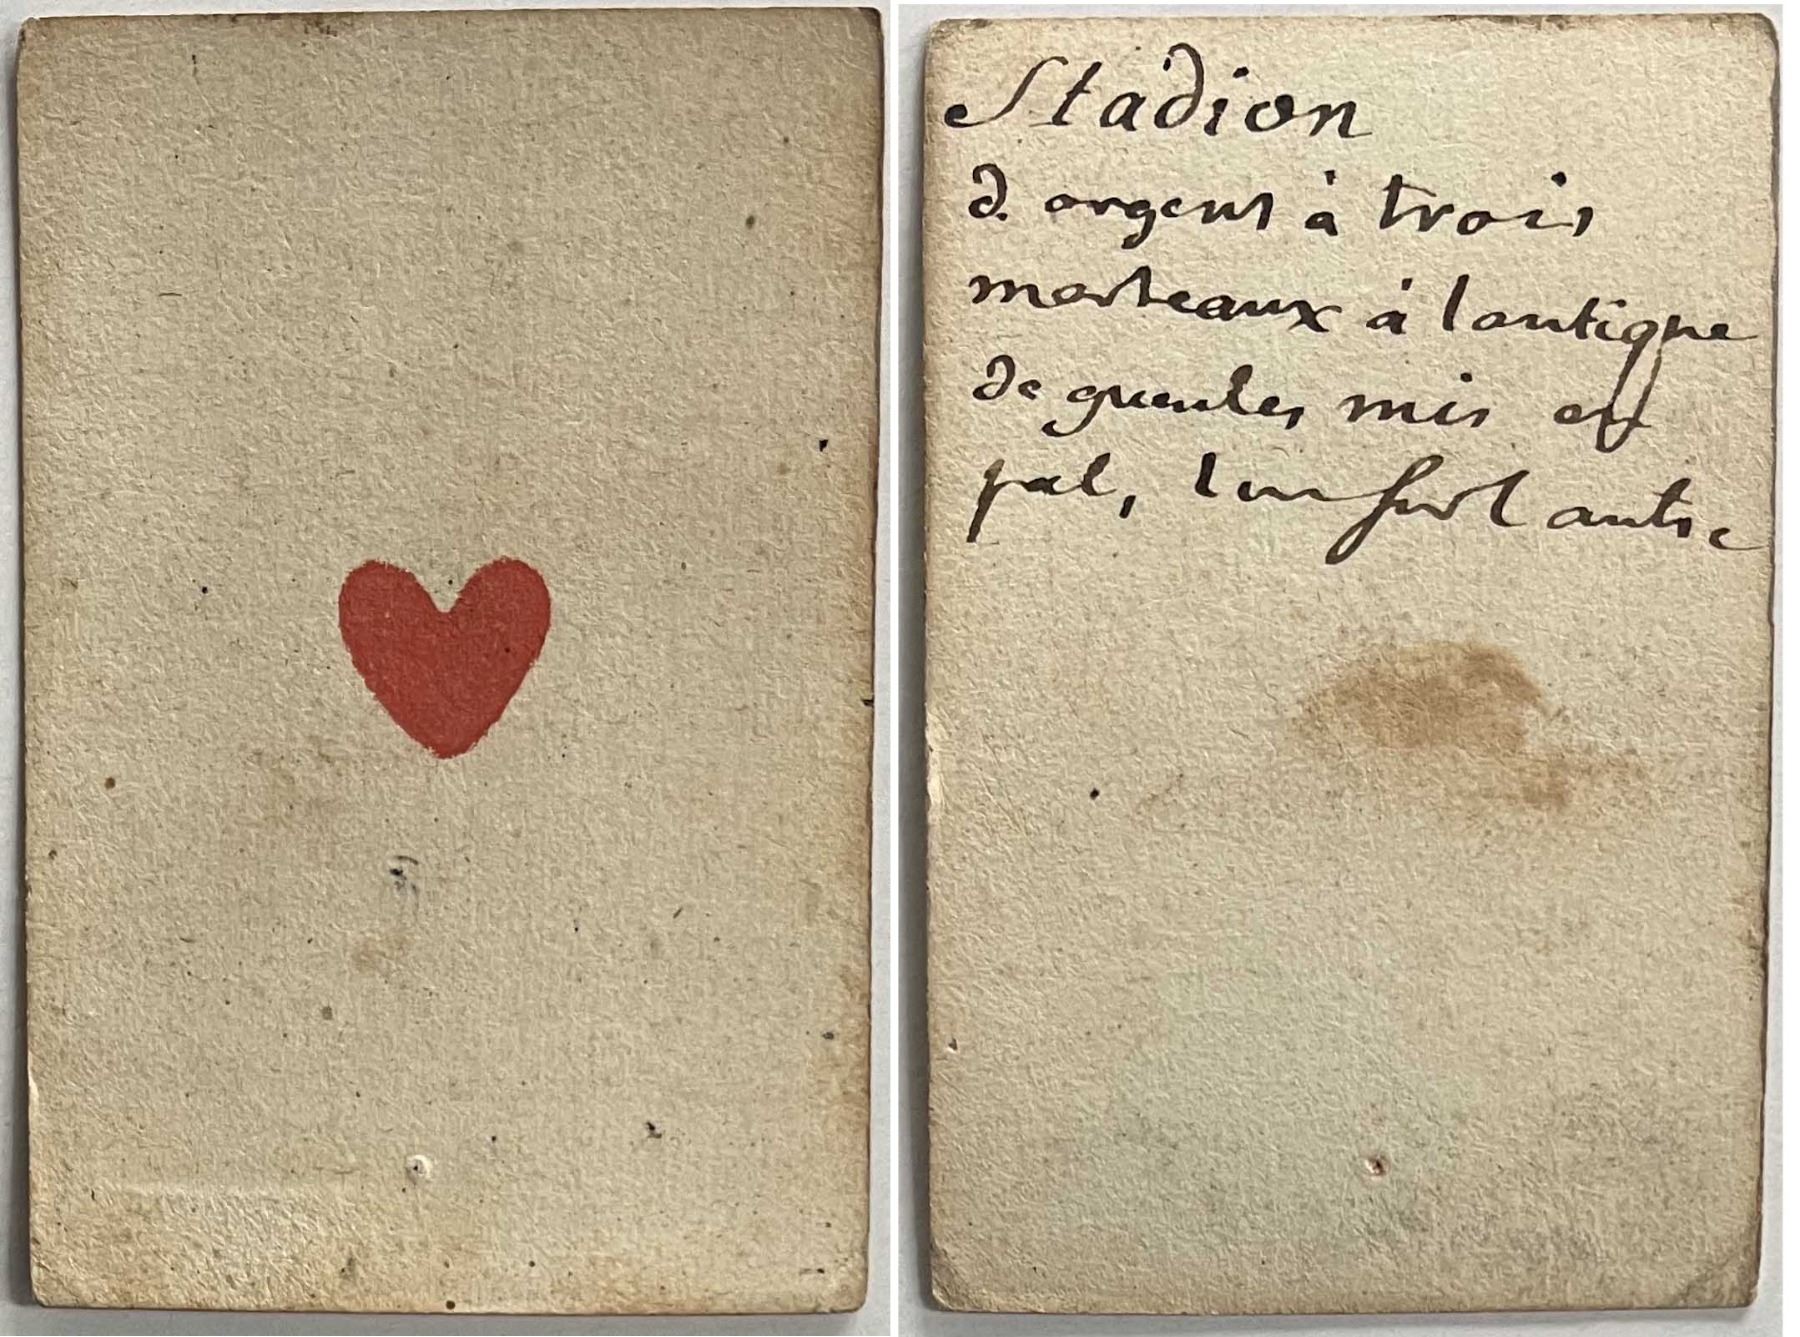 Stadion
d. argent à trois
marteaux à lantique
de gueules mis en
pal, lun surl autre